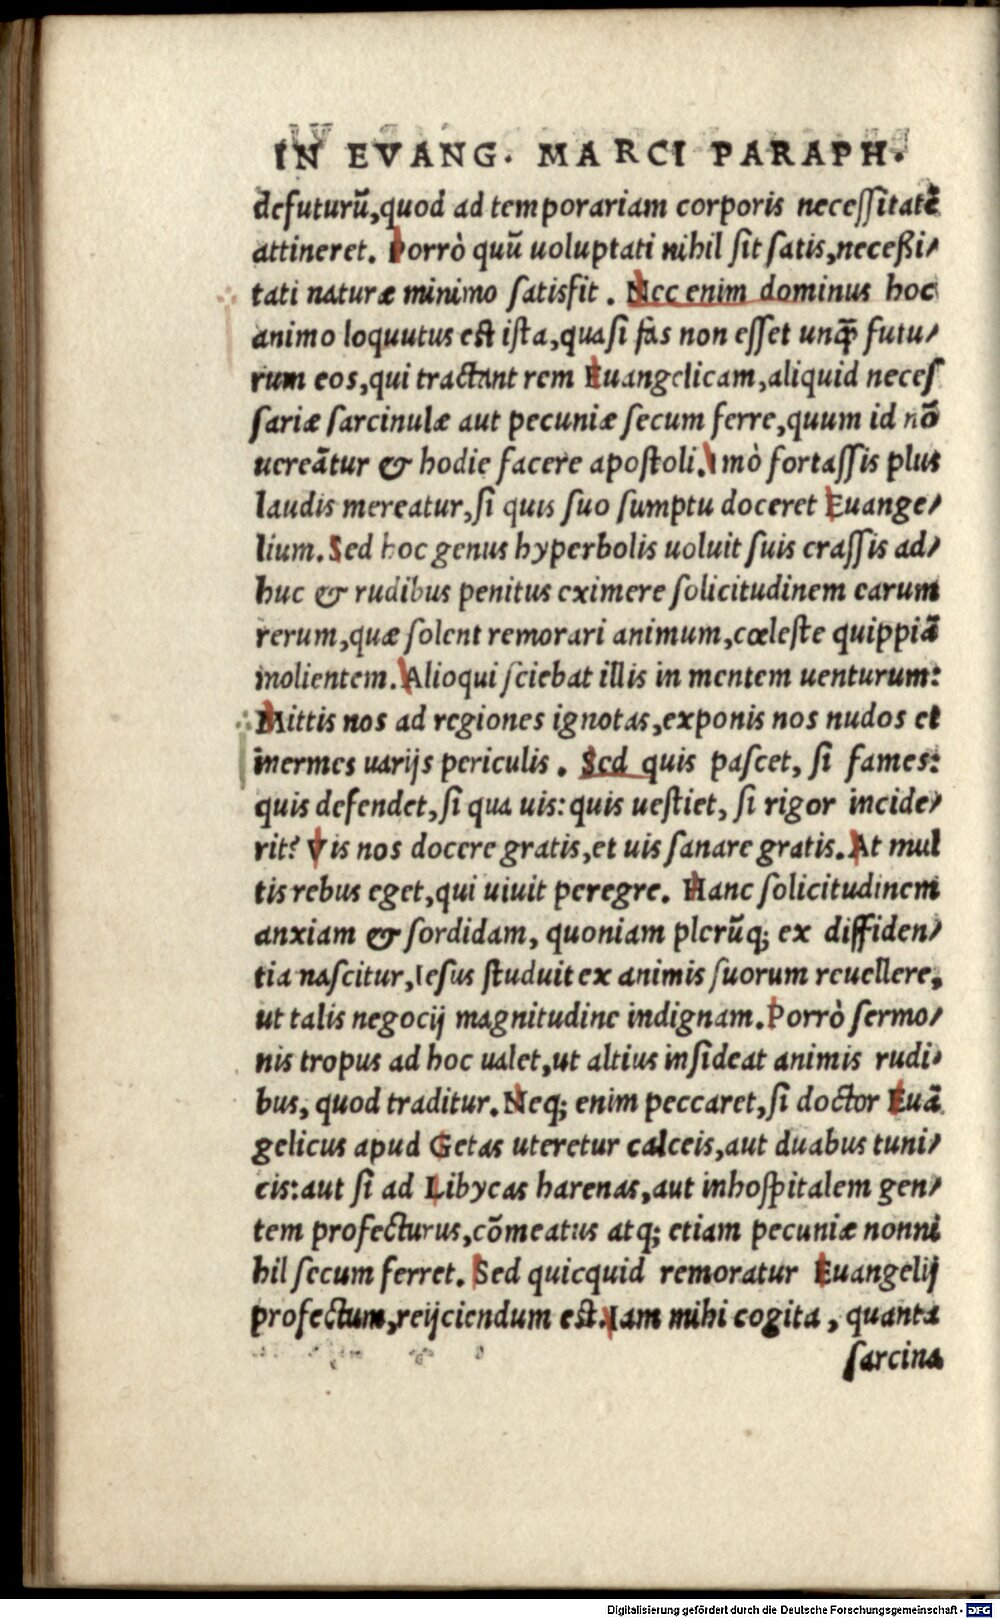 IN EVANG. MARCI PARAPH.
defuturū, quod ad temporariam corporis necessitatē
attineret. Porrò quū uoluptati nihil sit satis, neceßi/
tati naturæ minimo satisfit. Nec enim dominus hoc
animo loquutus est ista, quasi fas non esset unq̄ futu/
rum eos, qui tractant rem Euangelicam, aliquid neces
sariæ sarcinulæ aut pecuniæ secum ferre, quum id nō
uereātur & hodie facere apostoli. Imò fortassis plus
laudis mereatur, si quis suo sumptu doceret Euange/
lium. Sed hoc genus hyperbolis uoluit suis crassis ad/
huc & rudibus penitus eximere solicitudinem earum
rerum, quæ solent remorari animum, cœleste quippiā
molientem. Alioqui sciebat illis in mentem uenturum:
Mittis nos ad regiones ignotas, exponis nos nudos et
inermes uarijs periculis. Sed quis pascet, si fames:
quis defendet, si qua uis: quis uestiet, si rigor incide/
rit? Vis nos docere gratis, et uis sanare gratis. At mul
tis rebus eget, qui uiuit peregre. Hanc solicitudinem
anxiam & sordidam, quoniam plerūq; ex diffiden/
tia nascitur, Iesus studuit ex animis suorum reuellere,
ut talis negocij magnitudine indignam. Porrò sermo/
nis tropus ad hoc ualet, ut altius insideat animis rudi/
bus, quod traditur. Neq; enim peccaret, si doctor Euā
gelicus apud Getas uteretur calceis, aut duabus tuni/
cis: aut si ad Libycas harenas, aut inhospitalem gen/
tem profecturus, cōmeatus atq; etiam pecuniæ nonni
hil secum ferret. Sed quicquid remoratur Euangelij
profectum, reijciendum est. Iam mihi cogita, quanta
sarcina
Digitalisierung gefördert durch die Deutsche Forschungsgemeinschaft - DFG